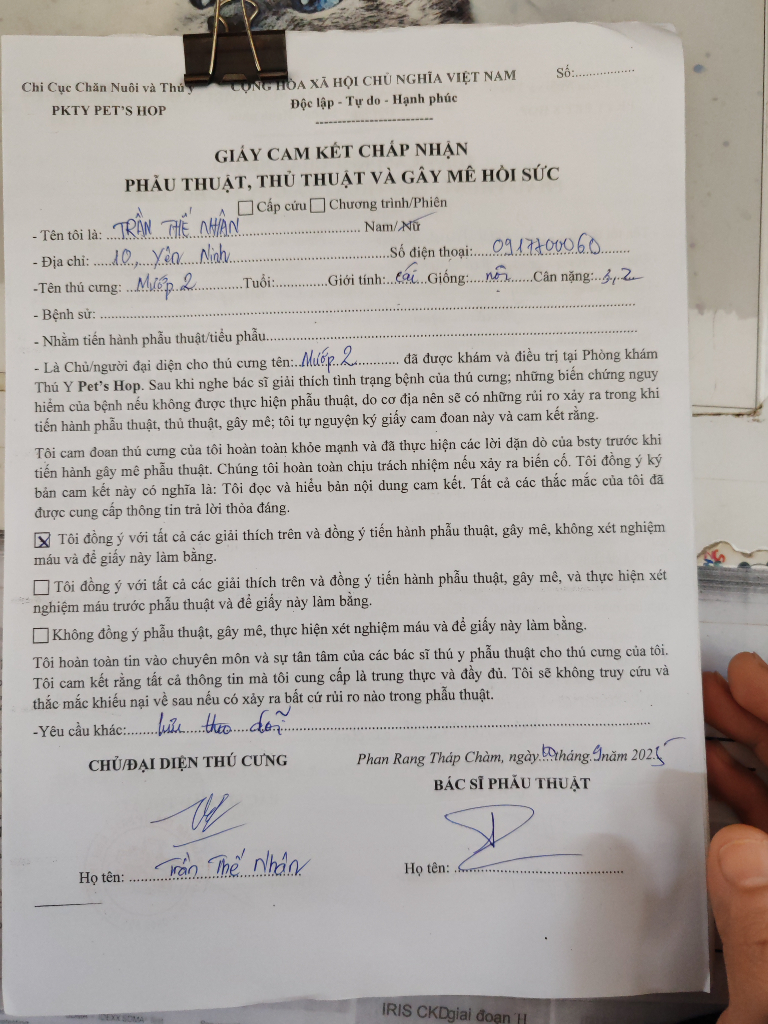 Chi Cục Chăn Nuôi và Thú y
CỘNG HÒA XÃ HỘI CHỦ NGHĨA VIỆT NAM
Số:................
PKTY PET'S HOP
Độc lập - Tự do - Hạnh phúc
---------------------------
GIẤY CAM KẾT CHẤP NHẬN
PHẪU THUẬT, THỦ THUẬT VÀ GÂY MÊ HỒI SỨC
Cấp cứu Chương trình/Phiên
- Tên tôi là: TRẦN THẾ NHÂN Nam/Nữ
- Địa chỉ: 10, Yên Ninh Số điện thoại: 0917700060
-Tên thú cưng: Mướp 2 Tuổi: Giới tính: cái Giống: Cân nặng: 3,2
- Bệnh sử:
- Nhằm tiến hành phẫu thuật/tiểu phẫu
- Là Chủ/người đại diện cho thú cưng tên: Mướp 2 đã được khám và điều trị tại Phòng khám
Thú Y Pet's Hop. Sau khi nghe bác sĩ giải thích tình trạng bệnh của thú cưng; những biến chứng nguy
hiểm của bệnh nếu không được thực hiện phẫu thuật, do cơ địa nên sẽ có những rủi ro xảy ra trong khi
tiến hành phẫu thuật, thủ thuật, gây mê; tôi tự nguyện ký giấy cam đoan này và cam kết rằng.
Tôi cam đoan thú cưng của tôi hoàn toàn khỏe mạnh và đã thực hiện các lời dặn dò của bsty trước khi
tiến hành gây mê phẫu thuật. Chúng tôi hoàn toàn chịu trách nhiệm nếu xảy ra biến cố. Tôi đồng ý ký
bản cam kết này có nghĩa là: Tôi đọc và hiểu bản nội dung cam kết. Tất cả các thắc mắc của tôi đã
được cung cấp thông tin trả lời thỏa đáng.
X Tôi đồng ý với tất cả các giải thích trên và đồng ý tiến hành phẫu thuật, gây mê, không xét nghiệm
máu và để giấy này làm bằng.
Tôi đồng ý với tất cả các giải thích trên và đồng ý tiến hành phẫu thuật, gây mê, và thực hiện xét
nghiệm máu trước phẫu thuật và để giấy này làm bằng.
Không đồng ý phẫu thuật, gây mê, thực hiện xét nghiệm máu và để giấy này làm bằng.
Tôi hoàn toàn tin vào chuyên môn và sự tân tâm của các bác sĩ thú y phẫu thuật cho thú cưng của tôi.
Tôi cam kết rằng tất cả thông tin mà tôi cung cấp là trung thực và đầy đủ. Tôi sẽ không truy cứu và
thắc mắc khiếu nại về sau nếu có xảy ra bất cứ rủi ro nào trong phẫu thuật.
-Yêu cầu khác: lưu theo dõi
CHỦ/ĐẠI DIỆN THÚ CƯNG
Phan Rang Tháp Chàm, ngày tháng 9 năm 2025
BÁC SĨ PHẪU THUẬT
Họ tên: Trần Thế Nhân
Họ tên:
IRIS CKD giai đoạn II